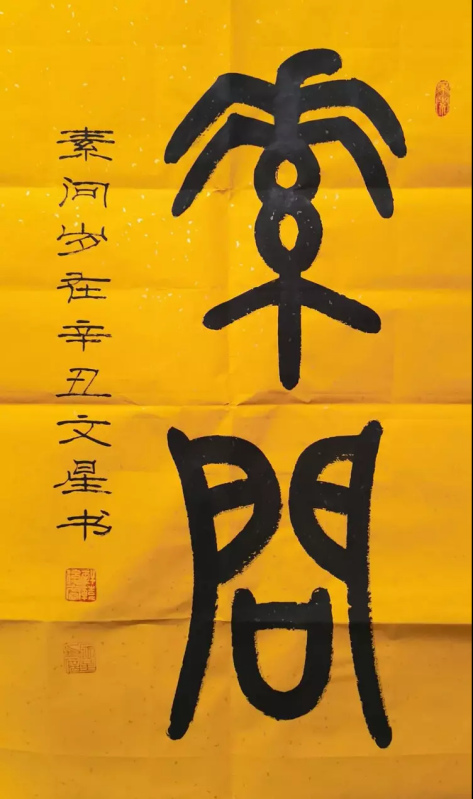 素问
素问岁在辛丑文星书